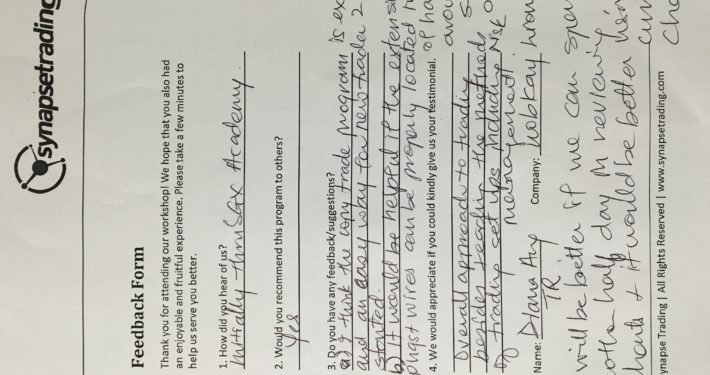 synapsetrading
Feedback Form
Thank you for attending our workshop! We hope that you also had
an enjoyable and fruitful experience. Please take a few minutes to
help us serve you better.
1. How did you hear of us?
Initially thru SGX Academy.
2. Would you recommend this program to others?
Yes
3. Do you have any feedback/suggestions?
a) I think the copy trade program is ex
and an easy way for new trader 2
started.
b) It would be helpful if the extensi
wires can be properly located
4. We would appreciate if you could kindly give us your testimonial.
of ha
arou
Overall approach to trading
besides teaching the methods
of trading set ups including risk
management.
Name: Diana Ang
Company:
TR
will be better if we can spen
other half day in reviewing
charts & it would be better
curr
cha
ynapse Trading | All Rights Reserved | www.synapsetrading.com